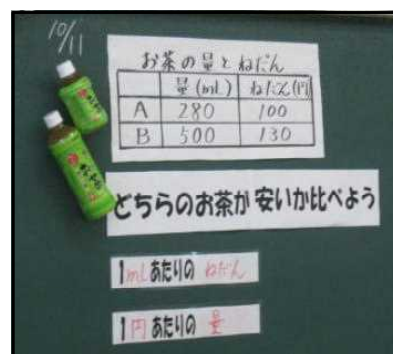 10/11
お茶の量とねだん
量(mL) ねだん(円)
A 280 100
B 500 130
どちらのお茶が安いか比べよう
1mLあたりのねだん
1円あたりの量